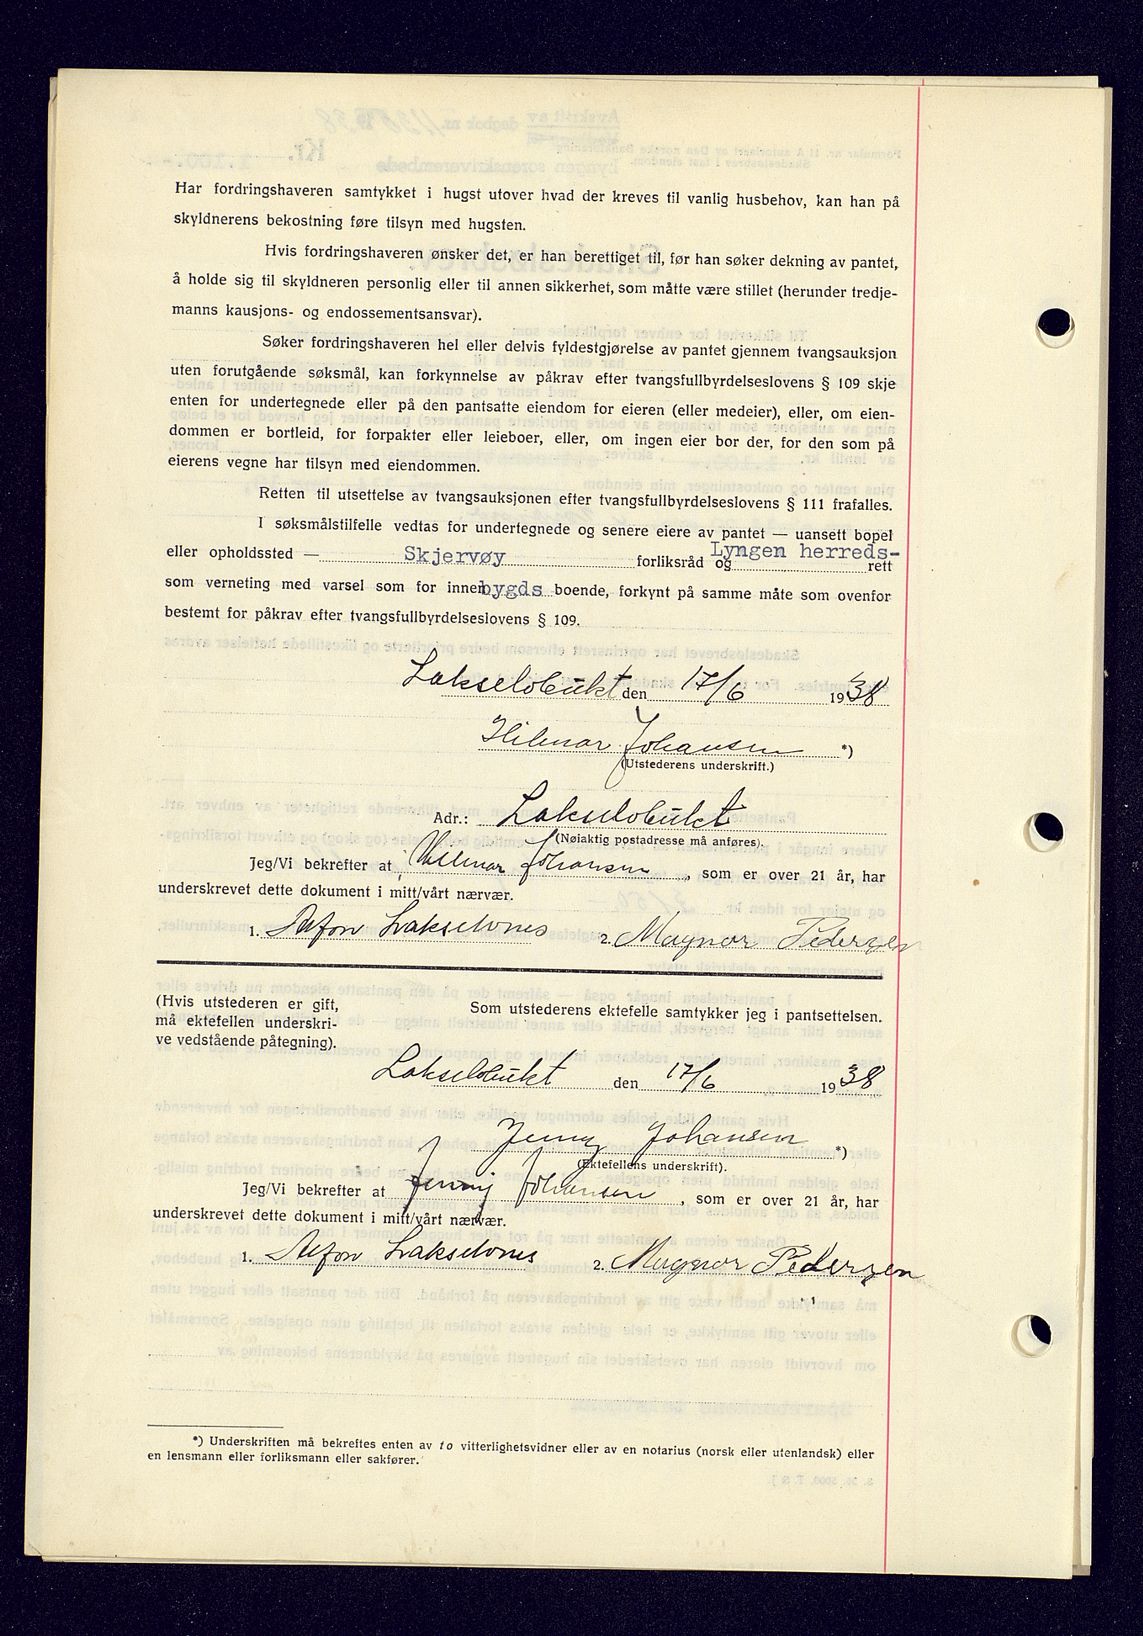 Har fordringshaveren samtykket i hugst utover hvad der kreves til vanlig husbehov, kan han på
skyldnerens bekostning føre tilsyn med hugsten.
Hvis fordringshaveren ønsker det, er han berettiget til, før han søker dekning av pantet,
å holde sig til skyldneren personlig eller til annen sikkerhet, som måtte være stillet (herunder tredje-
manns kausjons- og endossementsansvar).
Søker fordringshaveren hel eller delvis fyldestgjørelse av pantet gjennem tvangsauksjon
uten forutgående søksmål, kan forkynnelse av påkrav efter tvangsfullbyrdelseslovens § 109 skje
enten for undertegnede eller på den pantsatte eiendom for eieren (eller medeier), eller, om eien-
dommen er bortleid, for forpakter eller leieboer, eller, om ingen eier bor der, for den som på
eierens vegne har tilsyn med eiendommen.
Retten til utsettelse av tvangsauksjonen efter tvangsfullbyrdelseslovens § 111 frafalles.
I søksmålstilfelle vedtas for undertegnede og senere eiere av pantet — uansett bopel
eller opholdssted — Skjervøy forliksråd og Lyngen herreds- rett
som verneting med varsel som for innenbygds boende, forkynt på samme måte som ovenfor
bestemt for påkrav efter tvangsfullbyrdelseslovens § 109.
Lakselvbukt den 17/6 1938
Hilmar Johansen *)
(Utstederens underskrift.)
Adr.: Lakselvbukt
(Nøiaktig postadresse må anføres).
Jeg/Vi bekrefter at Hilmar Johansen, som er over 21 år, har
underskrevet dette dokument i mitt/vårt nærvær.
1. Alfon Lakselvnes 2. Magnor Pedersen
(Hvis utstederen er gift,
må ektefellen underskri-
ve vedstående påtegning).
Som utstederens ektefelle samtykker jeg i pantsettelsen.
Lakselvbukt den 17/6 1938
Jenny Johansen *)
(Ektefellens underskrift).
Jeg/Vi bekrefter at Jenny Johansen, som er over 21 år, har
underskrevet dette dokument i mitt/vårt nærvær.
1. Alfon Lakselvnes 2. Magnor Pedersen
*) Underskriften må bekreftes enten av to vitterlighetsvidner eller av en notarius (norsk eller utenlandsk) eller
en lensmann eller forliksmann eller sakfører.